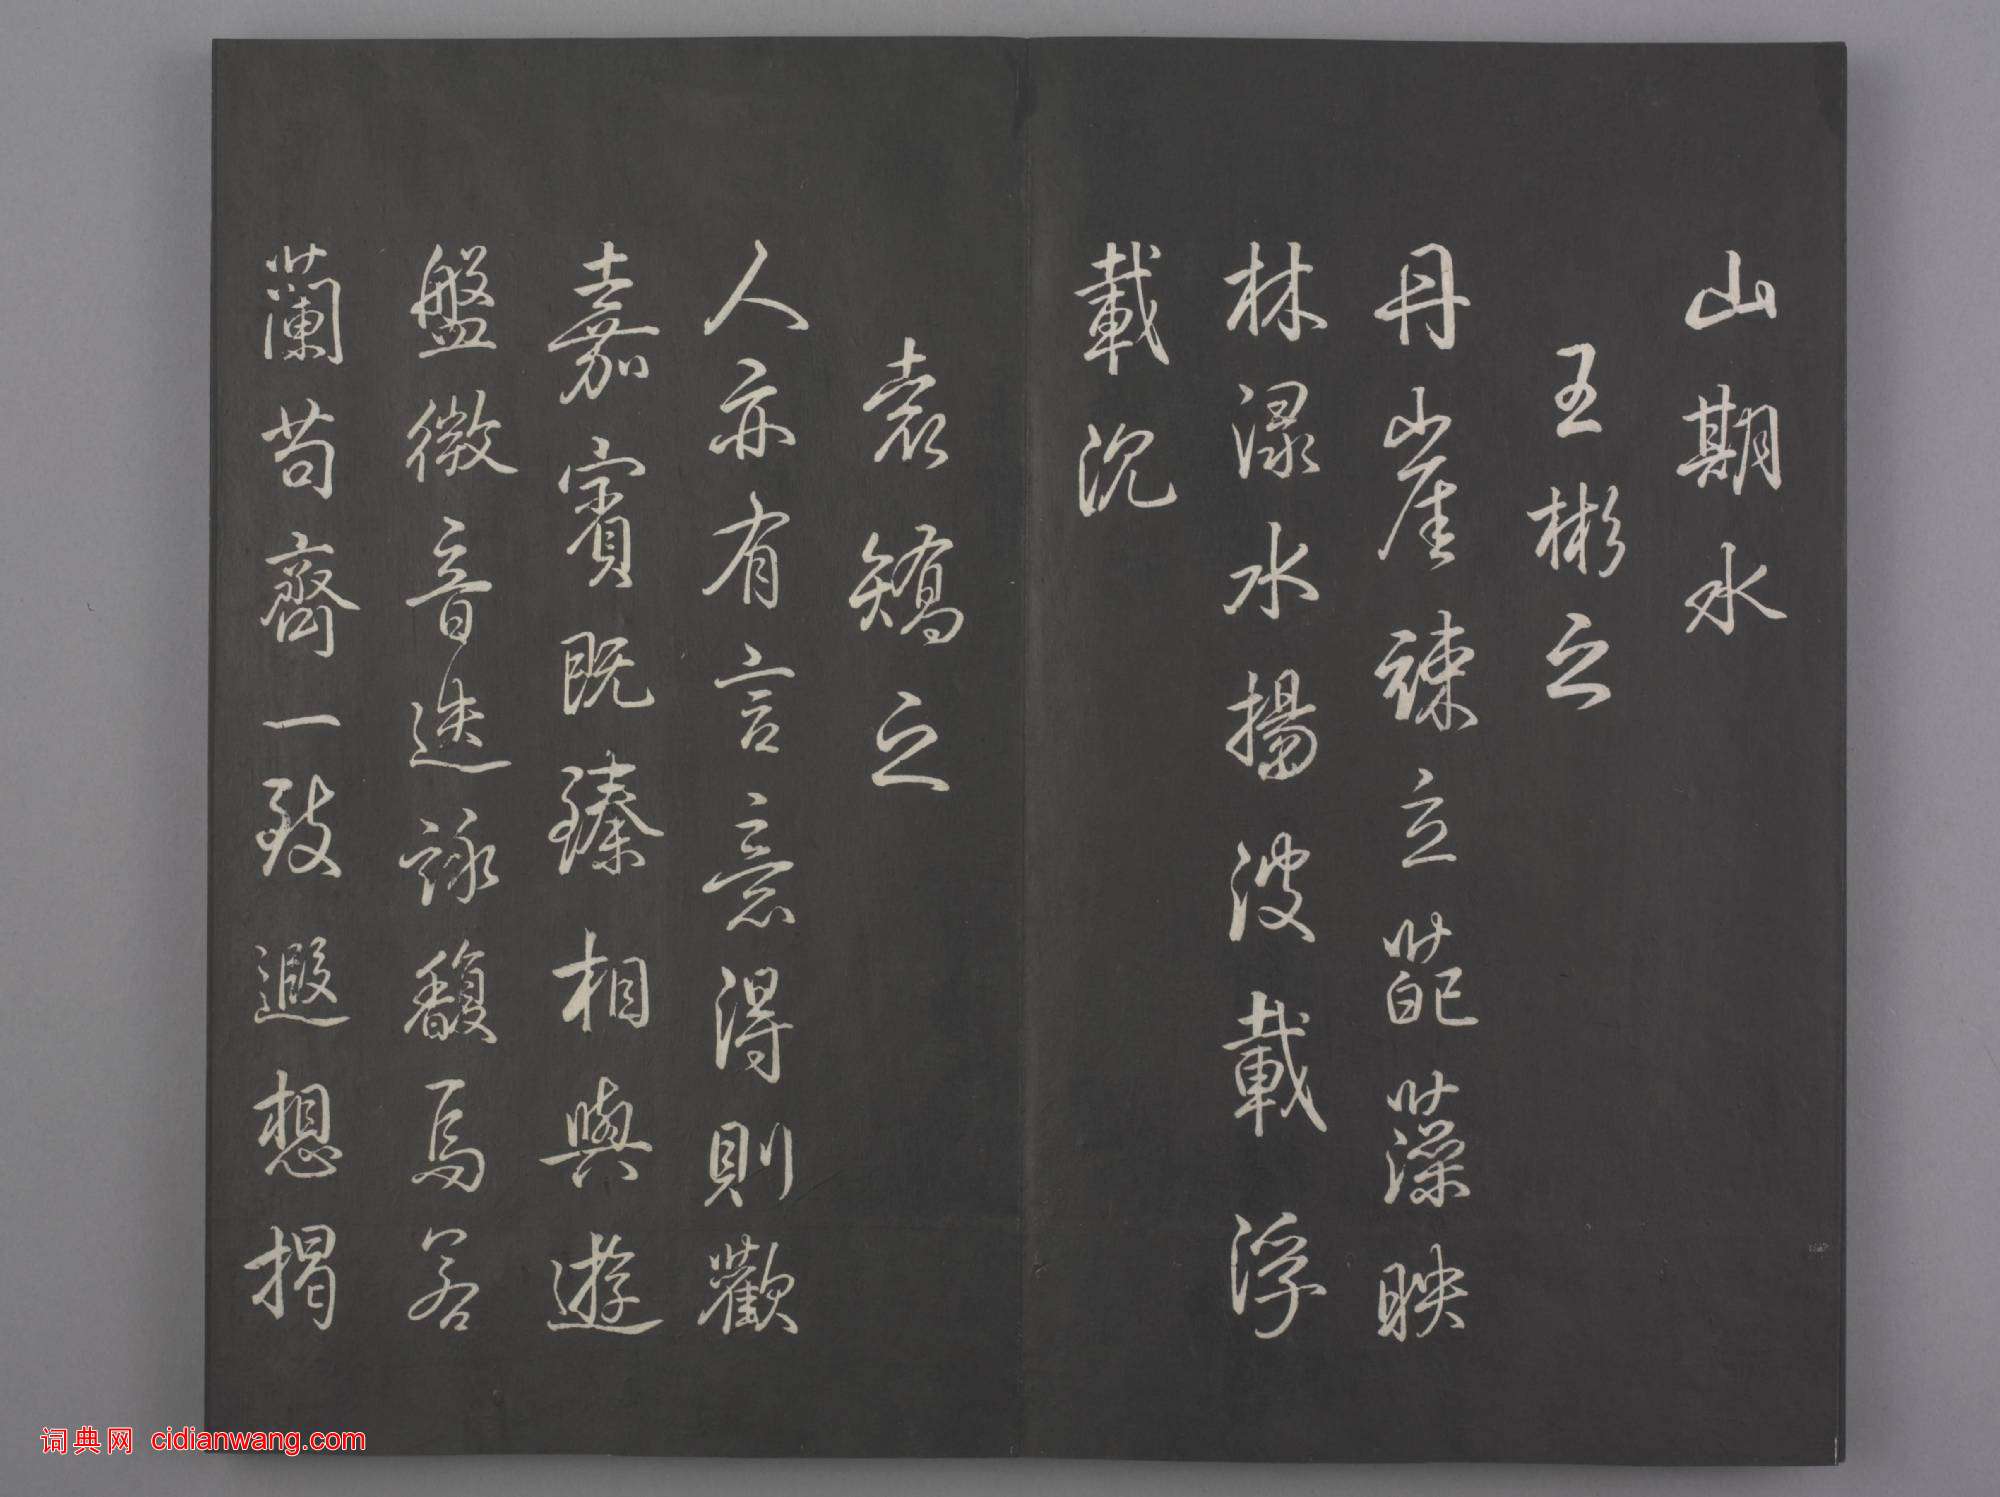 山期水
王彬之
丹崖竦立葩藻映
林渌水揚波載浮
載沉
袁矯之
人亦有言意得則歡
嘉賓既臻相與遊
盤微音迭詠馥焉若
蘭苟齊一致遐想揭
词典网 cidianwang.com